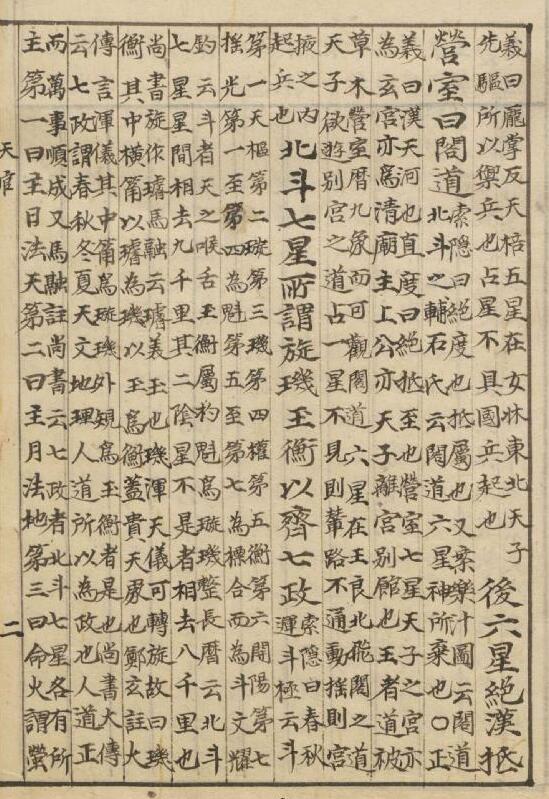 義曰龎掌反天棓五星在女牀東北天子
先驅所以禦兵也占星不具國兵起也
後六星絕漢抵
營室曰閣道
索隱曰絕度也抵屬也又案樂汁圖云閣道
北斗之輔石氏云閣道六星神所棄也〇正
義曰漢天河也直度曰絕抵至也營室七星天子之宮亦
為玄宮亦爲清廟主上公亦天子離宮別館也王者道被
草木營室曆九象而可觀閣道六星在王良北飛閣之道
天子欲遊別宮之道占一星不見則輦路不通動搖則宮
掖之內
起兵也
北斗七星所謂旋璣玉衡以齊七政
索隱曰春秋
運斗極云斗
第一天樞第二璇第三璣第四權第五衡第六開陽第七
搖光第一至第四為魁第五至第七為標合而為斗文耀
鈞云斗者天之喉舌玉衡屬杓魁爲璇璣整長曆云北斗
七星星間相去九千里其二陰星不是者相去八千里也
尚書旋作璿馬融云璿美玉也璣渾天儀可轉旋故曰璣
衡其中橫筩以璿為璣以玉爲衡蓋貴天象也鄭玄註大
傳言渾儀其中筩爲璇璣外規爲玉衡者是也尚書大傳
云七政謂春秋冬夏天文地理人道所以為政也人道正
而萬事順成又馬融註尚書云七政者北斗七星各有所
主第一曰主日法天第二曰主月法地第三曰命火謂熒
天官
二